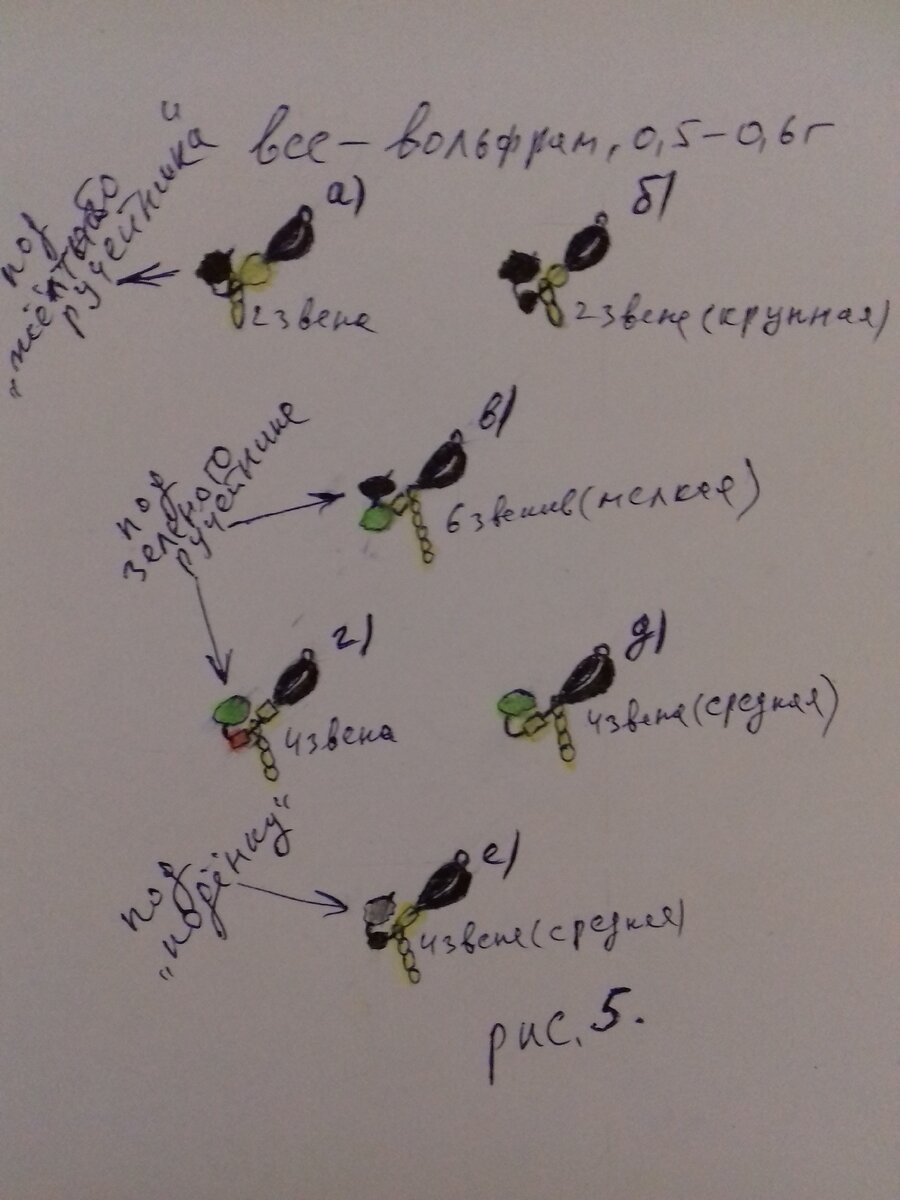 все – вольфрам, 0,5–0,6г
под
"жёлтого
ручейника"
а)
2 звена
б)
2 звена (крупная)
под
зелёного
ручейника
в)
6 звеньев (мелкая)
г)
4 звена
д)
4 звена (средняя)
под
"подёнку"
е)
4 звена (средняя)
рис. 5.